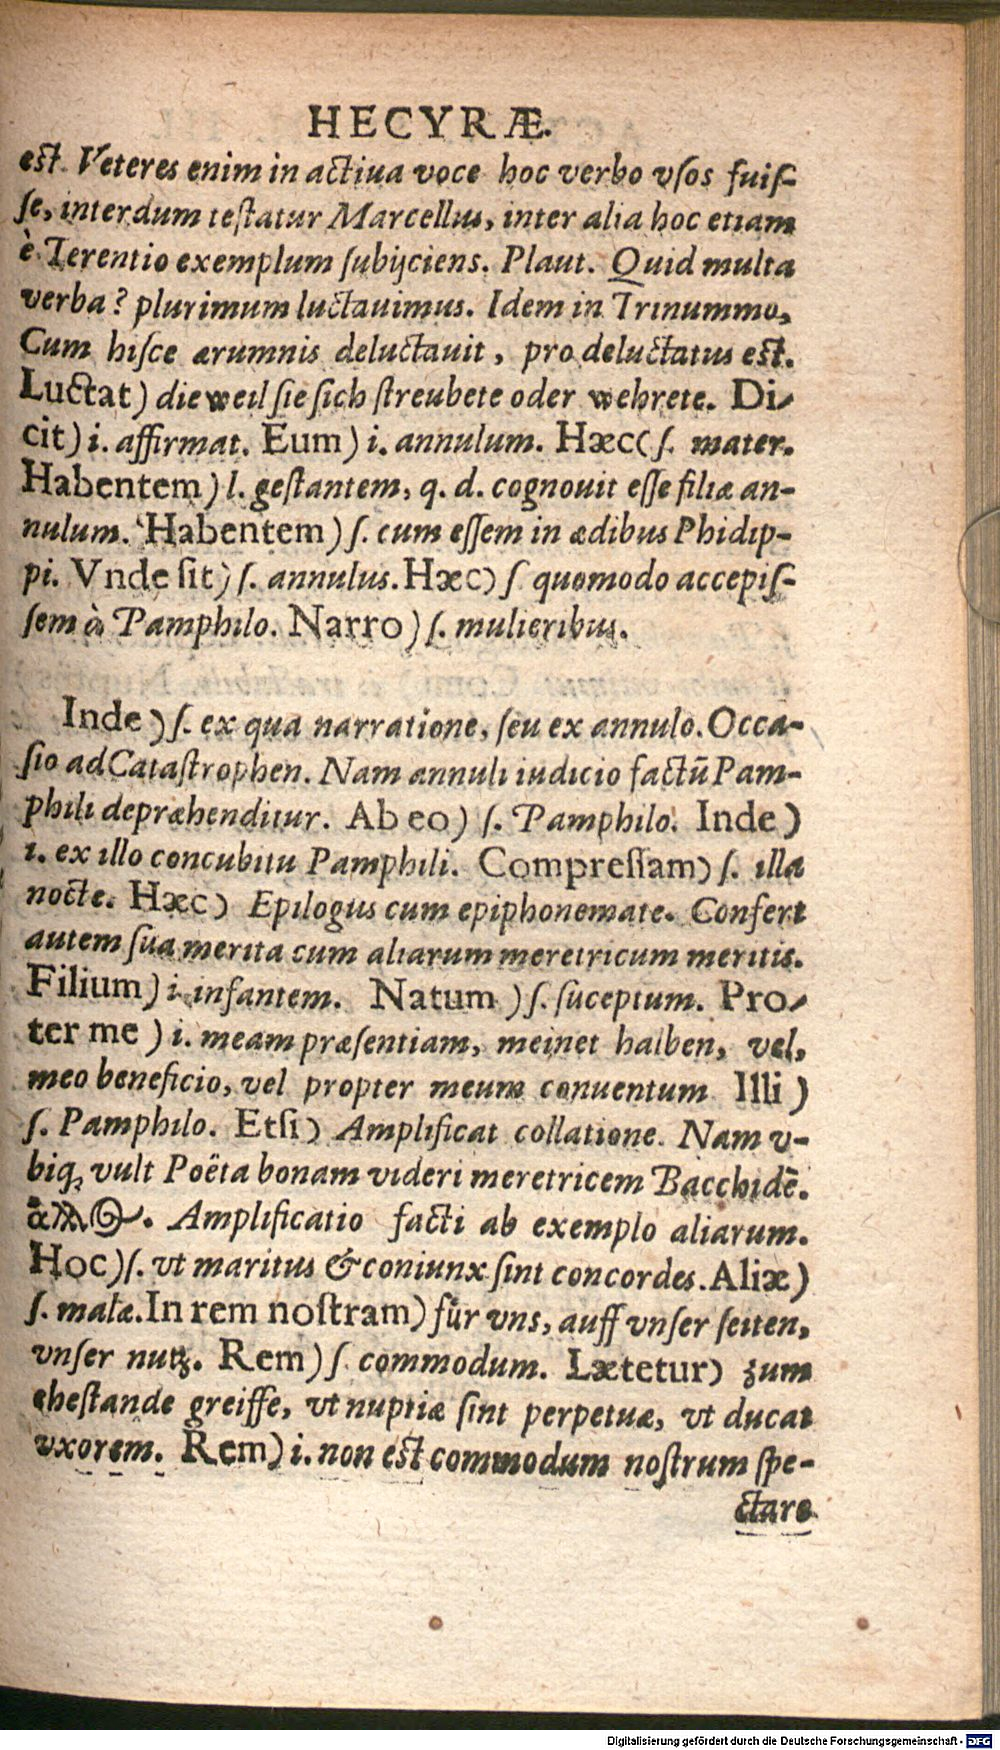 HECYRÆ.
est. Veteres enim in actiua voce hoc verbo vsos fuiſ-
ſe, interdum teſtatur Marcellus, inter alia hoc etiam
è Terentio exemplum ſubijciens. Plaut. Quid multa
verba? plurimum luctauimus. Idem in Trinummo,
Cum hiſce ærumnis deluctauit, pro deluctatus est.
Luctat) dieweil ſie ſich ſtreubete oder wehrete. Di-
cit) i. affirmat. Eum) i. annulum. Hæc( ſ. mater.
Habentem) l. geſtantem, q. d. cognouit eſſe filiæ an-
nulum. Habentem) ſ. cum eſſem in ædibus Phidip-
pi. Vnde ſit) ſ. annulus. Hæc) ſ quomodo accepiſ-
ſem à Pamphilo. Narro) ſ. mulieribus.
Inde) ſ. ex qua narratione, ſeu ex annulo. Occa-
ſio ad Cataſtrophen. Nam annuli iudicio factū Pam-
phili depræhenditur. Ab eo) ſ. Pamphilo. Inde)
i. ex illo concubitu Pamphili. Compreſſam) ſ. illa
nocte. Hæc) Epilogus cum epiphonemate. Confert
autem ſua merita cum aliarum meretricum meritis.
Filium) i. infantem. Natum) ſ. ſuceptum. Pro-
ter me) i. meam præſentiam, meinet halben, vel,
meo beneficio, vel propter meum conuentum Illi)
ſ. Pamphilo. Etſi) Amplificat collatione. Nam v-
biq; vult Poëta bonam videri meretricem Bacchidē.
Amplificatio facti ab exemplo aliarum.
Hoc) ſ. vt maritus & coniunx ſint concordes. Aliæ)
ſ. malæ. In rem noſtram) für vns, auff vnſer ſeiten,
vnſer nutz. Rem) ſ commodum. Lætetur) zum
eheſtande greiffe, vt nuptiæ ſint perpetuæ, vt ducat
vxorem. Rem) i. non est commodum noſtrum ſpe-
ctare
Digitalisierung gefördert durch die Deutsche Forschungsgemeinschaft - DFG